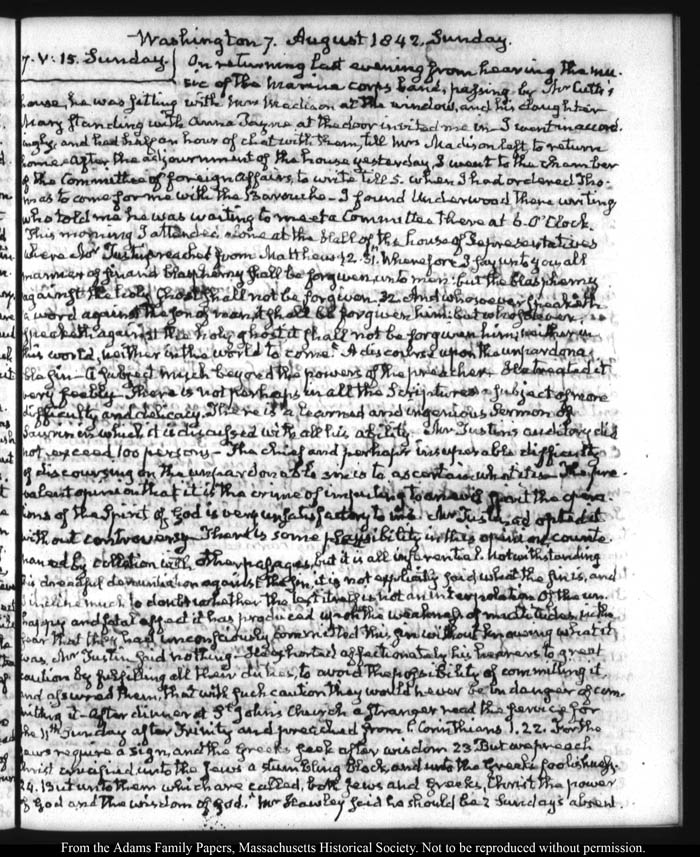 Washington 7. August 1842. Sunday.
7. V: 15. Sunday. On returning last evening from hearing the mu-
sic of the Marine corps band, passing by Mr Cutts's
house, he was sitting with Mrs Madison at the window, and his daughter
Mary standing with Anna Payne at the door invited me in. I went in accord-
ingly, and had half an hour of chat with them, till Mrs Madison left, to return
home. After the adjournment of the house yesterday I went to the chamber
of the Committee of foreign Affairs, to write till 5. when I had ordered Tho-
mas to come for me with the Barouche - I found Underwood there writing
who told me he was waiting to meet a Committee there at 6. O'Clock.
This morning I attended alone at the Hall of the house of Representatives
where Mr Tustin preached from Matthews 12. 31. Wherefore I say unto you all
manner of sin and blasphemy shall be forgiven unto men: but the blasphemy
against the holy Ghost shall not be forgiven 32. And whosoever speaketh
a word against the son of man, it shall be forgiven him: but whosoever
speaketh against the holy ghost it shall not be forgiven him, neither in
this world, neither in the world to come. A discourse upon the unpardona-
ble sin - A subject much beyond the powers of the preacher. He treated it
very feebly - There is not perhaps in all the Scriptures a subject of more
difficulty and delicacy. There is a learned and ingenious Sermon of
Saurin in which it is discussed with all his ability. Mr Tustin's auditory did
not exceed 100 persons - The chief and perhaps insuperable difficulty
of discoursing on the unpardonable sin is to ascertain what it is - The pre-
valent opinion that it is the crime of imputing to an evil spirit the opera-
tions of the Spirit of God is very unsatisfactory to me. Mr Tustin adopted it
without controversy. There is some plausibility in this opinion counte-
nanced by collation with other passages, but it is all inferential. Notwithstanding
this dreadful denunciation against the sin, it is not explicitly said what the sin is, and
I incline much to doubt whether the text itself is not an interpolation. Of the un-
happy and fatal effect it has produced upon the weakness of multitudes, in the
fear that they had unconsciously committed this sin without knowing what it
was, Mr Tustin said nothing - He exhorted affectionately his hearers to great
caution by fulfilling all their duties, to avoid the possibility of committing it,
and assured them, that with such caution they would never be in danger of com-
mitting it - After dinner at St John's Church a stranger read the service for
the 11th Sunday after Trinity and preached from 1. Corinthians 1. 22. For the
Jews require a sign, and the Greeks seek after wisdom 23. But we preach
Christ crucified unto the Jews a stumbling block, and unto the Greeks foolishness.
24. But unto them which are called, both Jews and Greeks, Christ the power
of God and the wisdom of God. Mr Hawley said he should be 2 Sundays absent.
From the Adams Family Papers, Massachusetts Historical Society. Not to be reproduced without permission.